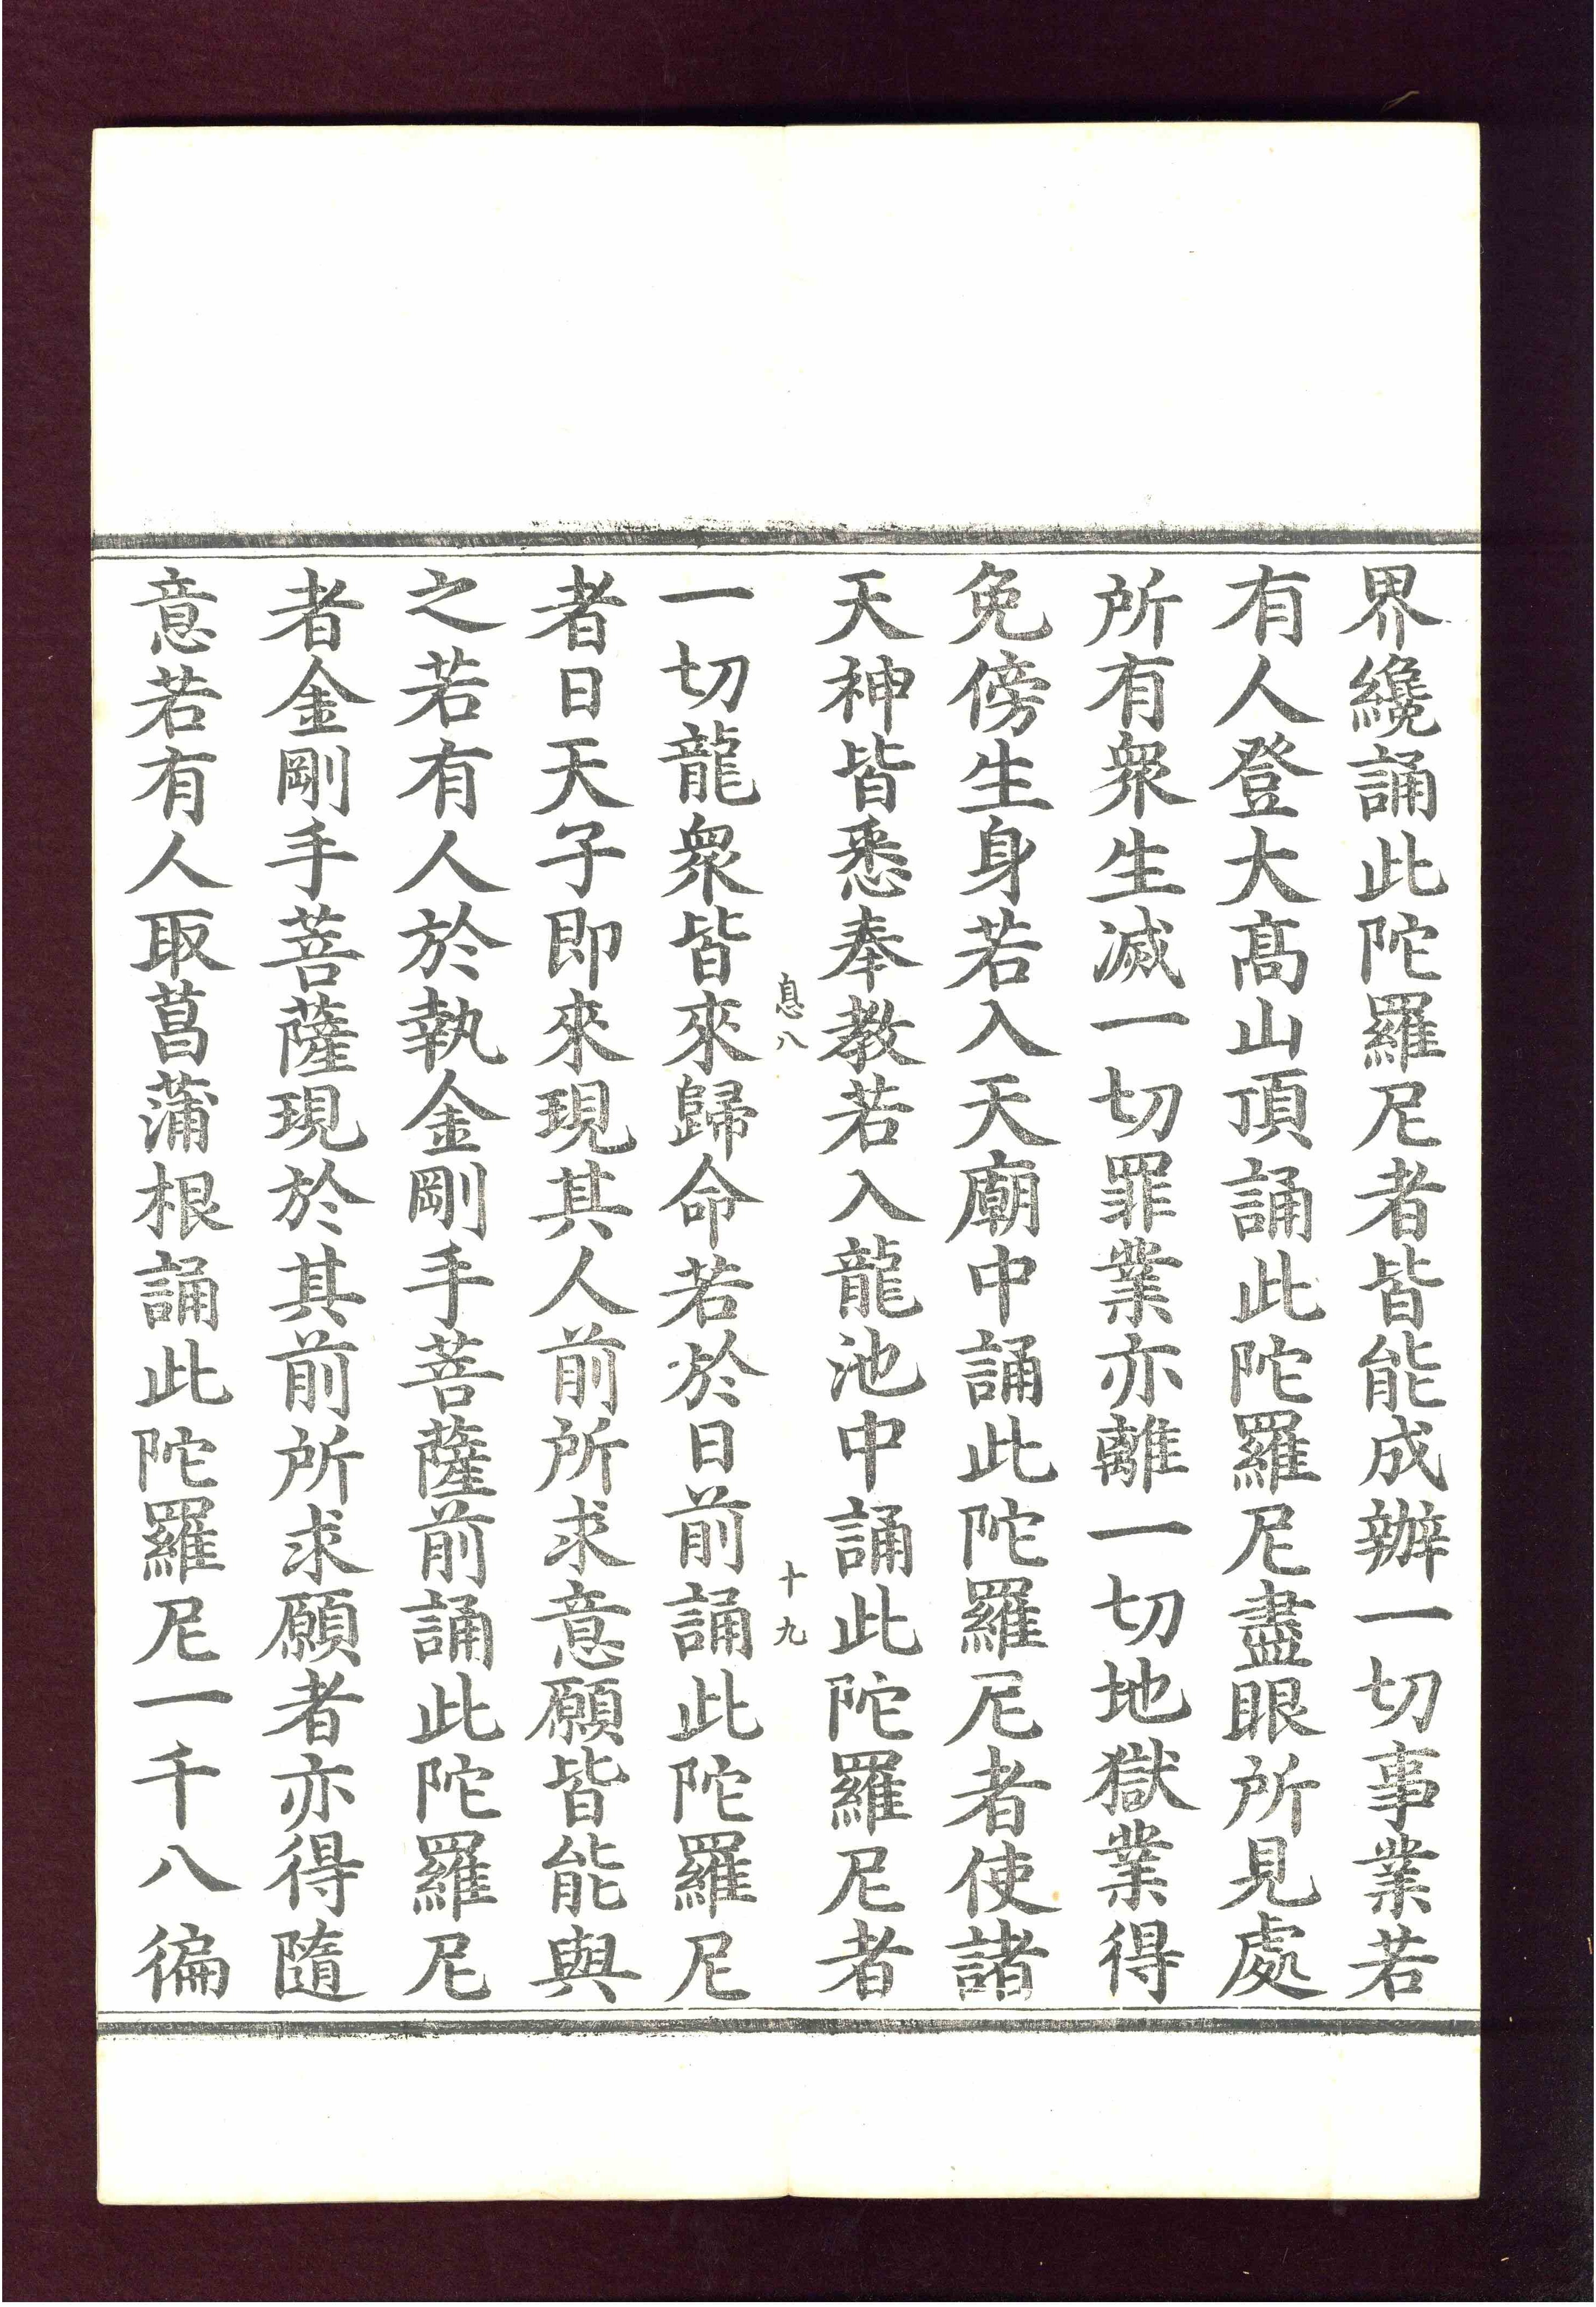 界纔誦此陀羅尼者皆能成辦一切事業若
有人登大高山頂誦此陀羅尼盡眼所見處
所有眾生滅一切罪業亦離一切地獄業得
免傍生身若入天廟中誦此陀羅尼者使諸
天神皆悉奉教若入龍池中誦此陀羅尼者
息八 十九
一切龍眾皆來歸命若於日前誦此陀羅尼
者日天子即來現其人前所求意願皆能與
之若有人於執金剛手菩薩前誦此陀羅尼
者金剛手菩薩現於其前所求願者亦得隨
意若有人取菖蒲根誦此陀羅尼一千八徧